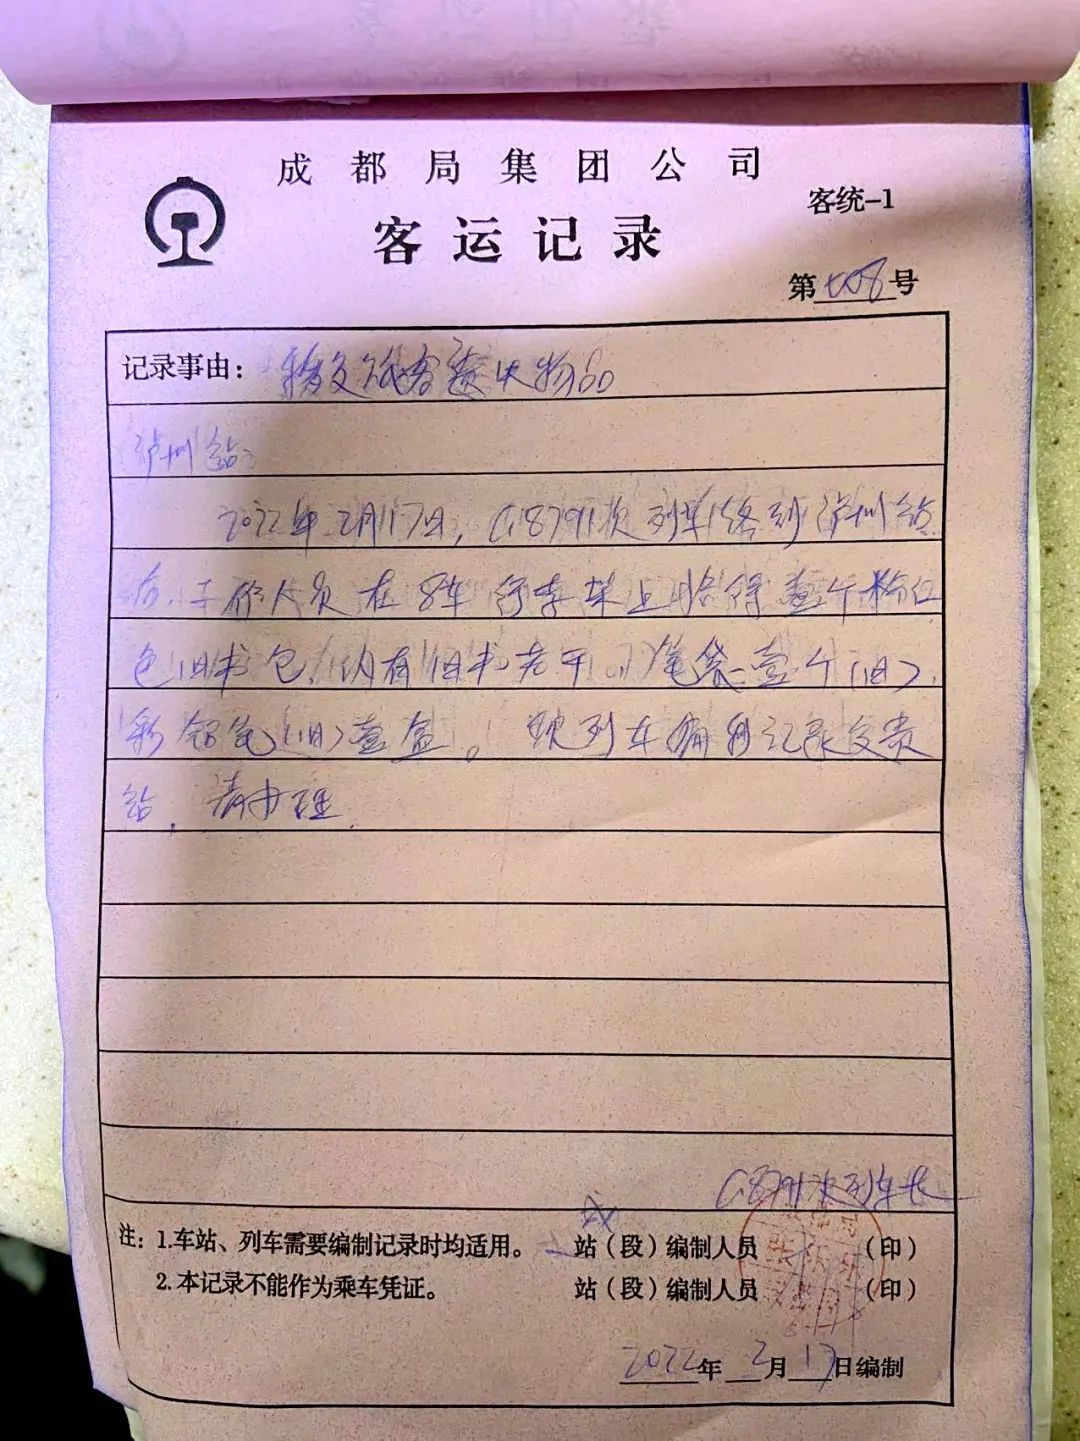 成都局集团公司
客统-1
客运记录
第 号
记录事由：移交旅客遗失物品
泸州站：
2022年2月17日，C68791次列车终到泸州站
后，工作人员在8车行李架上拾得壹个粉红
色旧书包，内有旧书若干，笔袋壹个（旧），
彩铅笔（旧）壹盒。现列车编制记录交贵
站，请办理。
次列车长
注：1.车站、列车需要编制记录时均适用。 站（段）编制人员 （印）
2.本记录不能作为乘车凭证。 站（段）编制人员 （印）
2022年2月17日编制